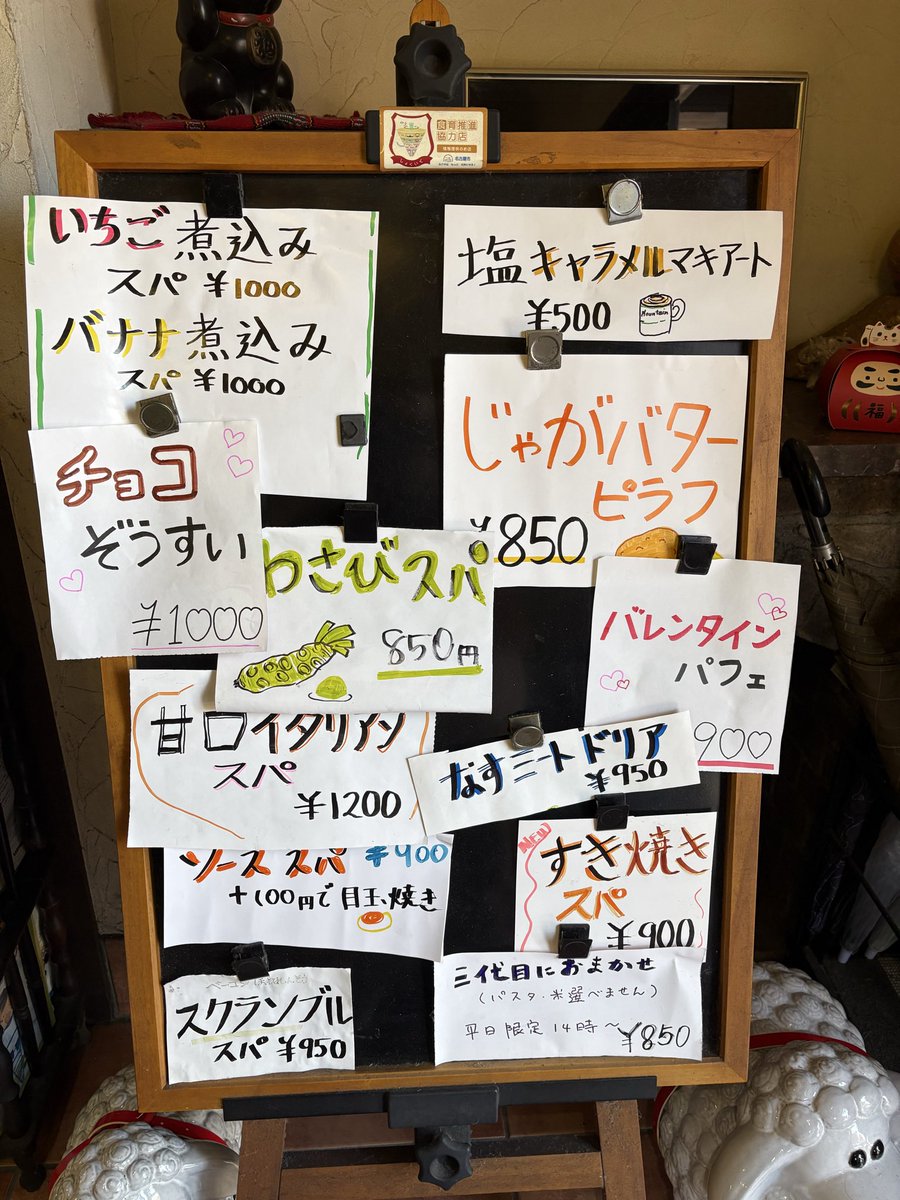 食育推進
協力店
名古屋市
いちご煮込み
スパ ¥1000
バナナ煮込み
スパ ¥1000
塩キャラメルマキアート
¥500
Mountain
じゃがバター
ピラフ
¥850
チョコ
ぞうすい
¥1000
わさびスパ
850円
バレンタイン
パフェ
900
甘口イタリアン
スパ
¥1200
なすミートドリア
¥950
ソーススパ ¥900
+100円で目玉焼き
NEW
すき焼き
スパ
¥900
スクランブル
スパ ¥950
三代目におまかせ
(パスタ・米選べません)
平日限定14時〜
¥850
福